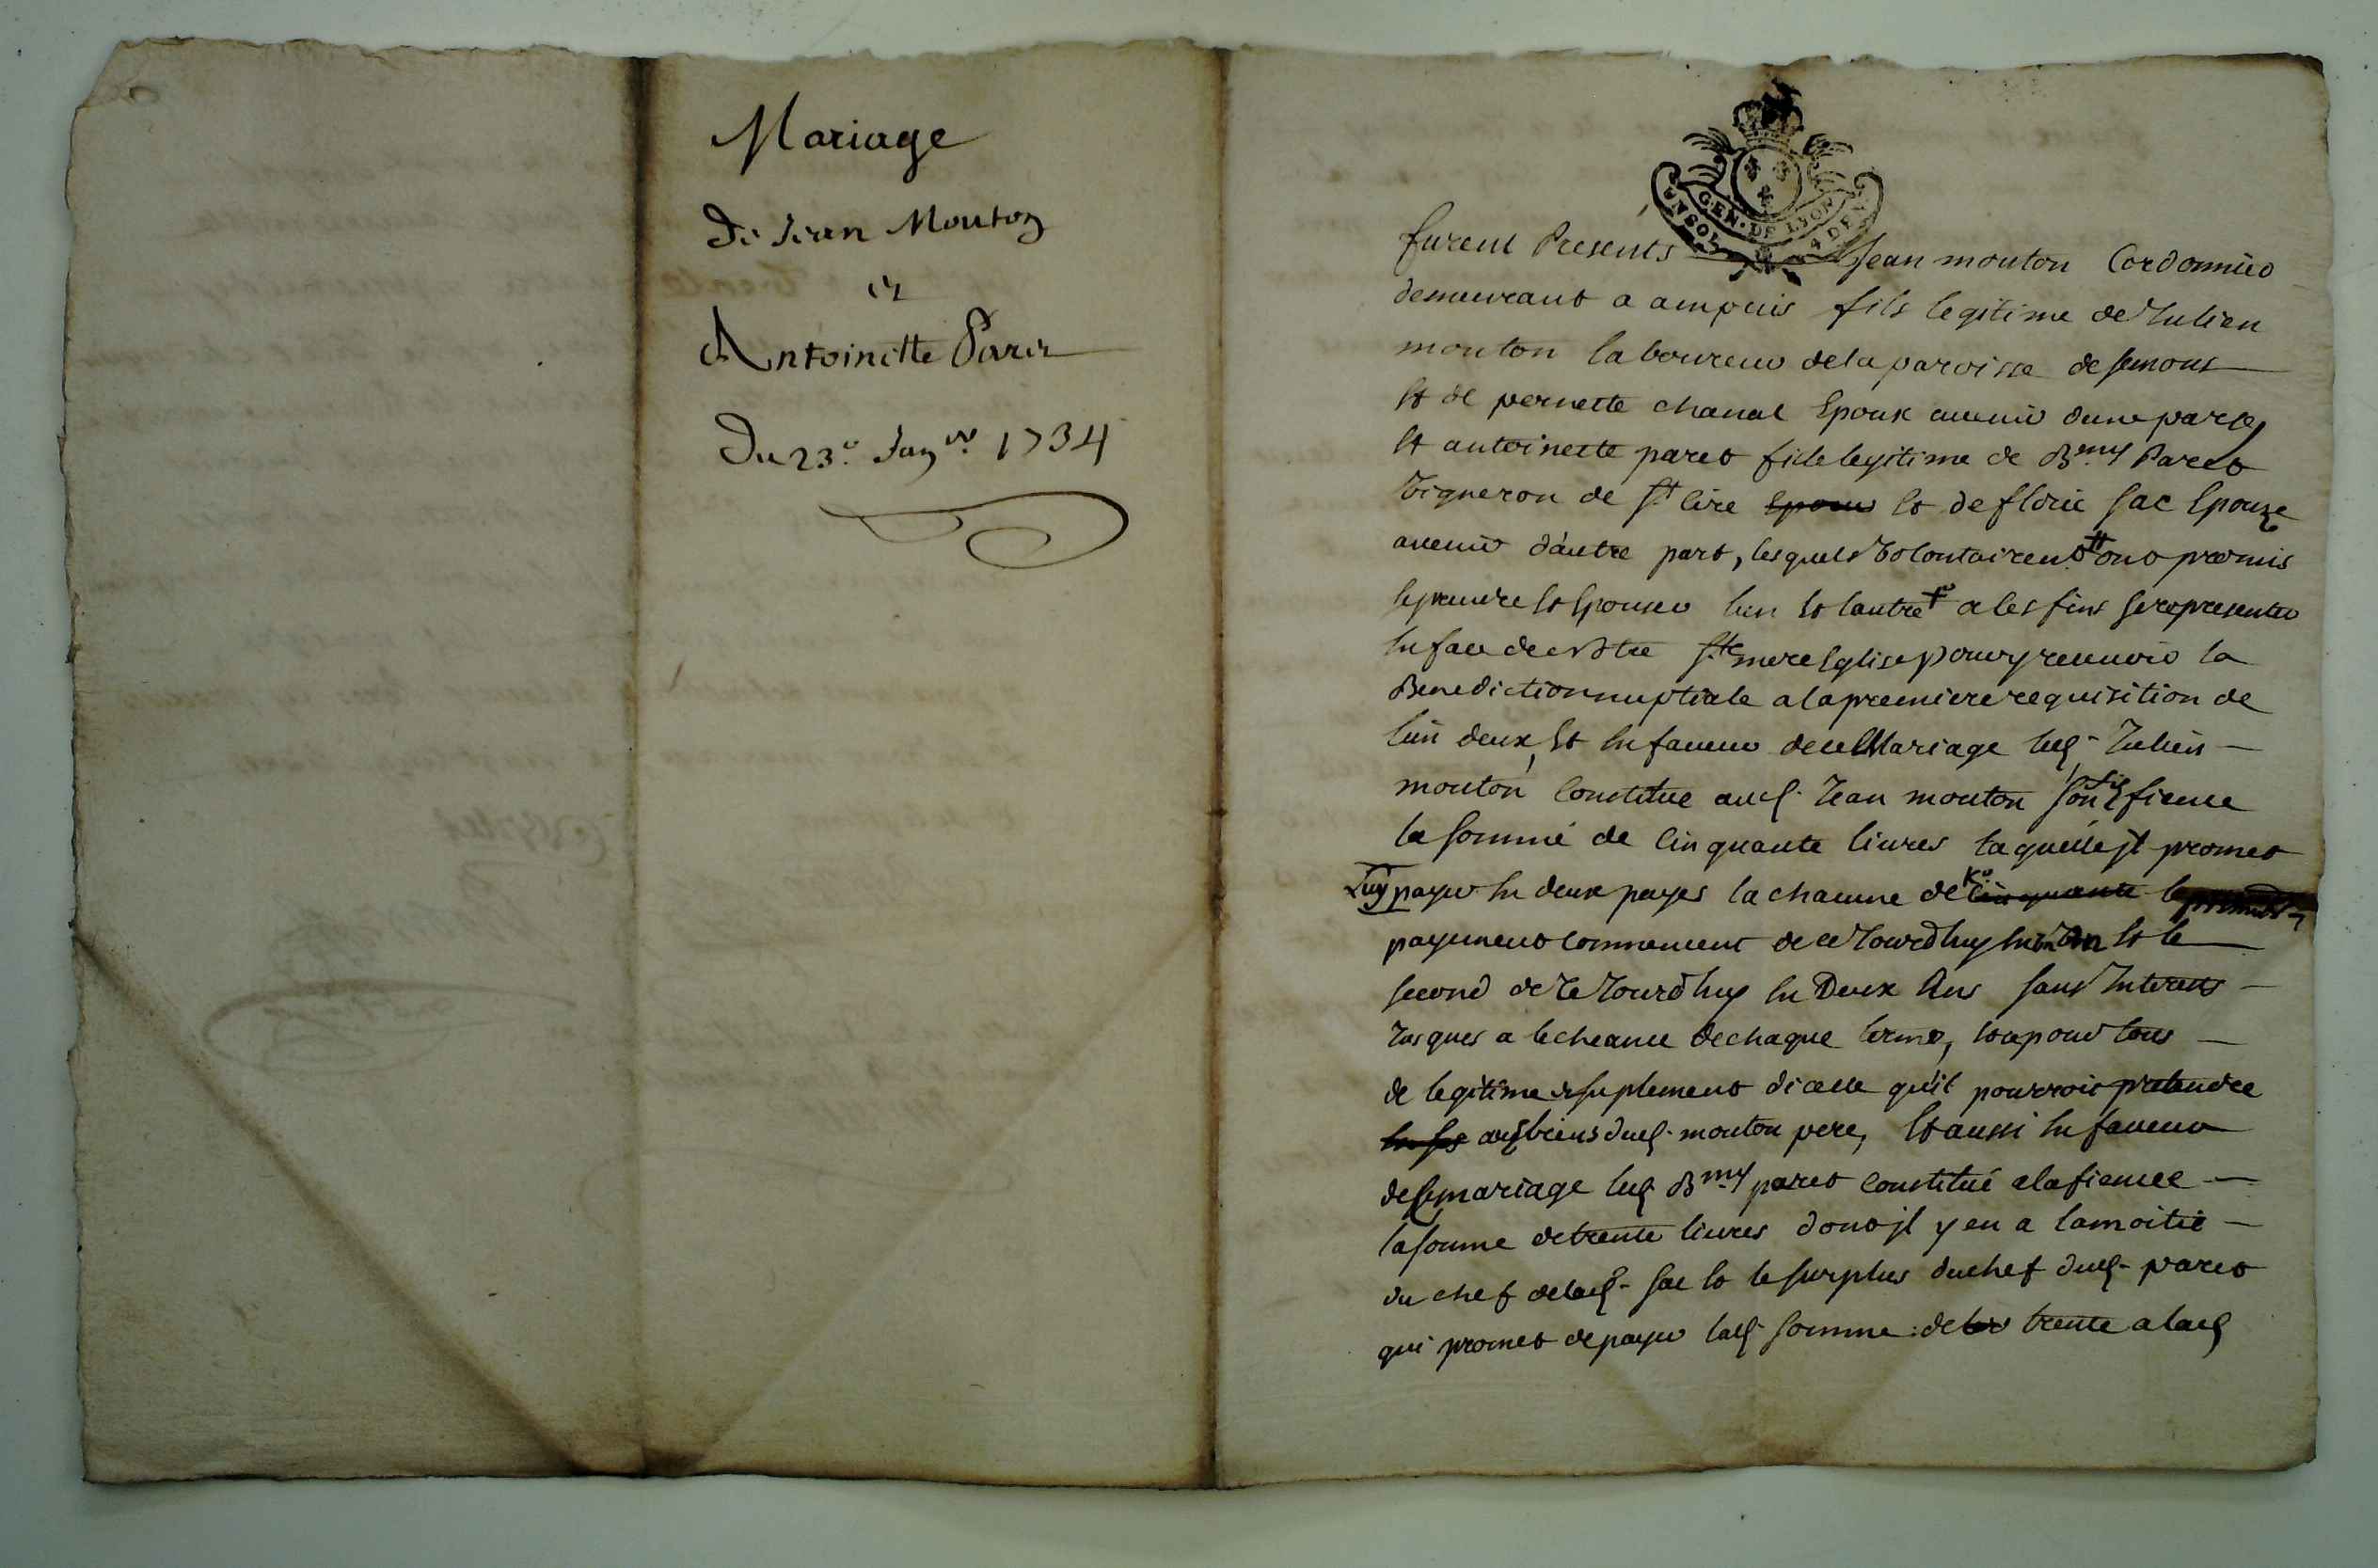 Mariage
De Jean Mouton
et
Antoinette Paret
Du 23e Janvr 1734
GEN. DE LYON
UN SOL 4 DEN
furent Presents Jean mouton Cordonnier
demeurant a ampuis fils legitime de Julien
mouton laboureur de la paroisse de semons
Et de pernette chanal Epoux avenir dune part,
Et antoinette paret fille legitime de Bmy Paret
Vigneron de st Cire Epoux Et de florie sac Epouze
avenir d'autre part, lesquels Volontairemt ont promis
se prendre Et Epouser lun Et lautre a les fins se representer
En face de notre ste mere Eglise pour y recevoir la
Benediction nuptiale a la premiere requisition de
lun deux, Et En faveur de ce Mariage led. Julien
mouton Constitue aud. Jean mouton son fils fience
la somme de Cinquante livres laquelle jl promet
Luy payer En deux payes la chacune de Cinquante le premier
payement commencent de ce Jourdhuy En un an Et le
second de Ce Jourdhuy En Deux Ans sans Interets
Jusques a lecheance de chaque terme, Et a pour tous
de legitime & suplement dicelle qu'il pourroit pretendre
En ses aux biens dud. mouton pere, Et aussi En faveur
de ce mariage led. Bmy paret Constitue a la fiencee
la somme de trente livres dont jl y en a la moitie
du chef de lad. sac Et le surplus du chef dud. paret
qui promet de payer lad. somme de trente a lad